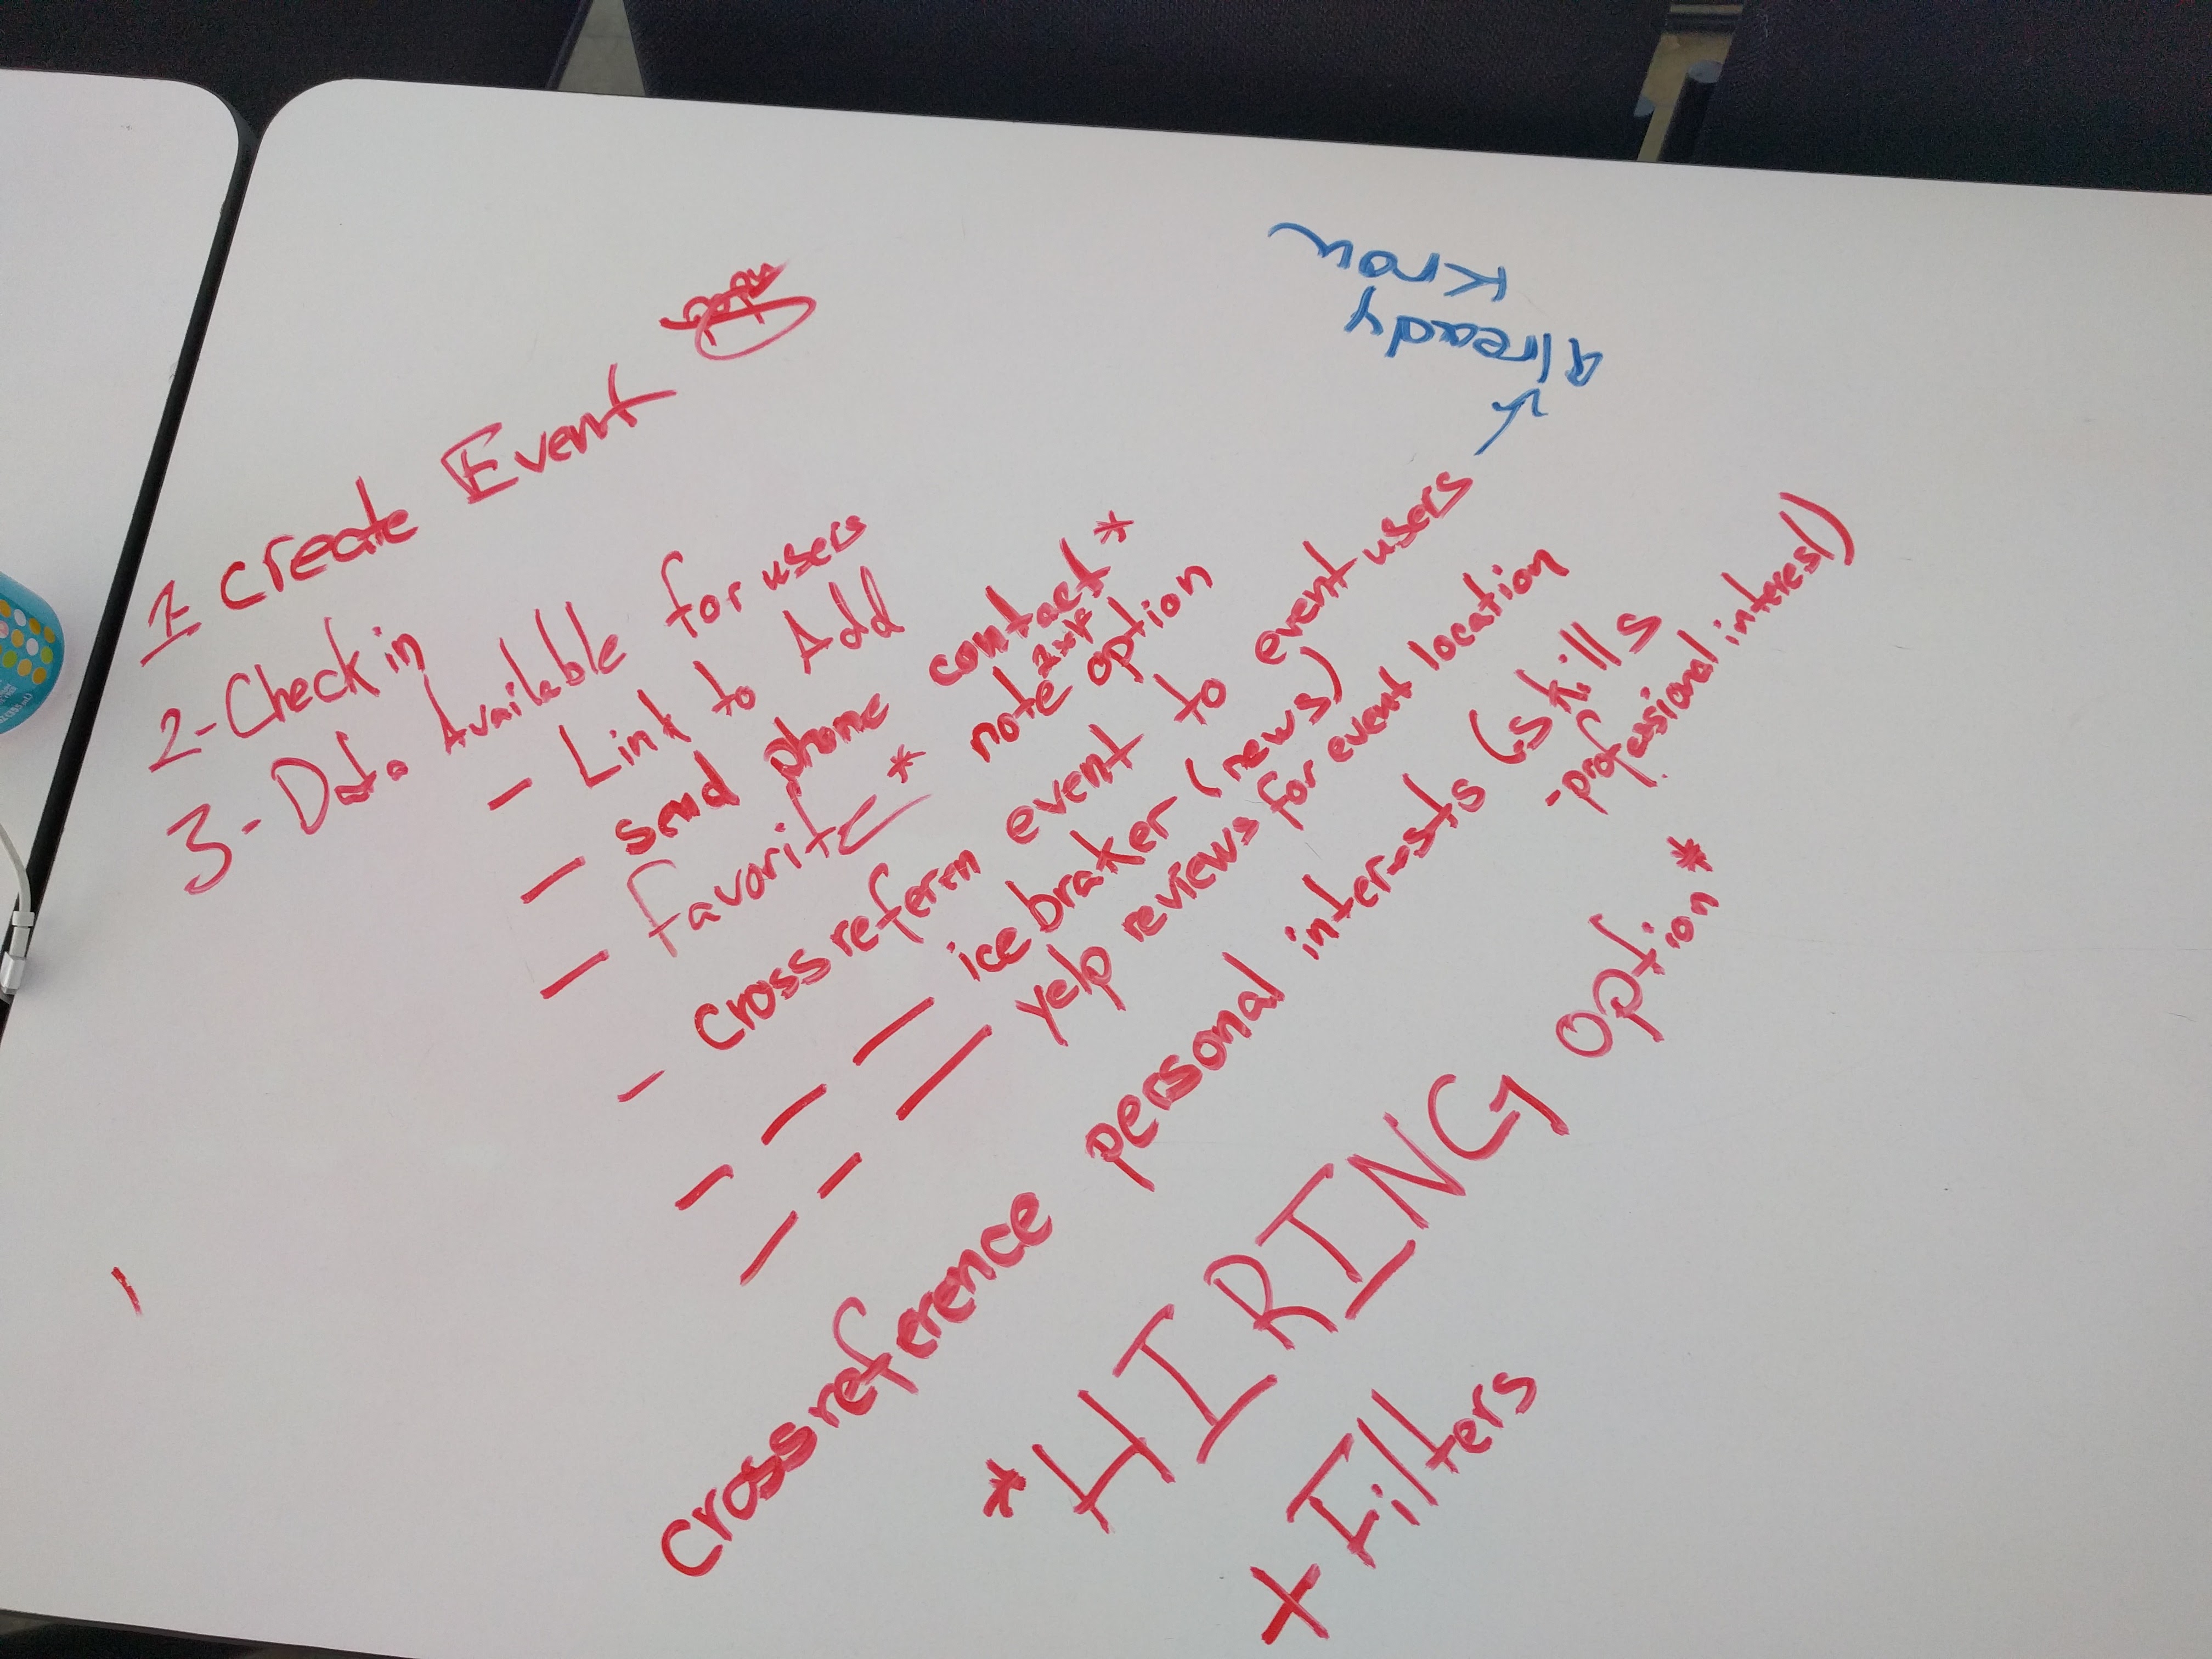 1 Create Event
2-Check in
3-Data Available for users
- Link to Add
- send phone contact *
- Favorite * note option
- Cross referen event to event users
already
know
- - ice braker (news)
- - yelp reviews for event location
cross reference personal interests (skills
-professional interest)
*HIRING option*
+ Filters